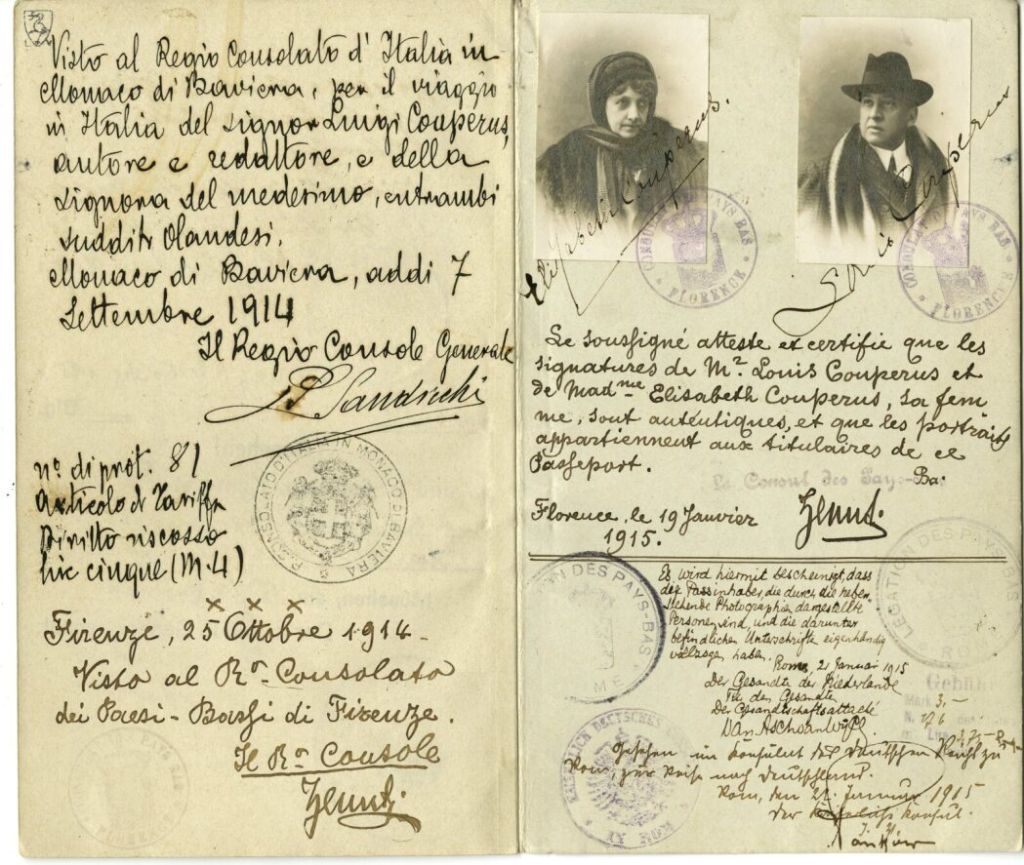 Visto al Regio Consolato d'Italia in
Monaco di Baviera, per il viaggio
in Italia del signor Luigi Couperus,
autore e redattore, e della
signora del medesimo, entrambi
sudditi Olandesi.
Monaco di Baviera, addi 7
Settembre 1914
Il Regio Console Generale
n° di prot. 81
Articolo di Tariffa
Diritto riscosso
lire cinque (M. 4)
R. CONSOLATO D'ITALIA IN MONACO DI BAVIERA
x x x
Firenze, 25 Ottobre 1914-
Visto al Ro. Consolato
dei Paesi-Bassi di Firenze.
Il Ro. Console
Elisabeth Couperus.
Louis Couperus
CONSULAT PAYS BAS
FLORENCE
CONSULAT PAYS BAS
FLORENCE
Le soussigné atteste et certifie que les
signatures de Mr. Louis Couperus et
de Madme Elisabeth Couperus, sa fem
me, sont auténtiques, et que les portraits
appartiennent aux titulaires de ce
Passeport.
Le Consul des Pays-Bas:
Florence, le 19 Janvier
1915.
DES PAYS-BAS
LEGATION DES PAYS-BAS
Es wird hiermit bescheinigt, dass
die Passinhaber die durch die neben
stehende Photographien dargestellte
Personen sind, und die darunter
befindlichen Unterschrifte eigenhändig
vollzogen haben.
Rome, 21 Januar 1915
Der Gesandte der Niederlande
Für den Gesandte
Der Gesandtschaftsattaché
Gebühr
Mark 3.-
N. 176
KAISERLICH DEUTSCHES
Gesehen im Konsulat des Deutschen Reichs zu
Rom, zur Reise nach Deutschland.
Rom, den 21. Januar 1915
der Konsul.